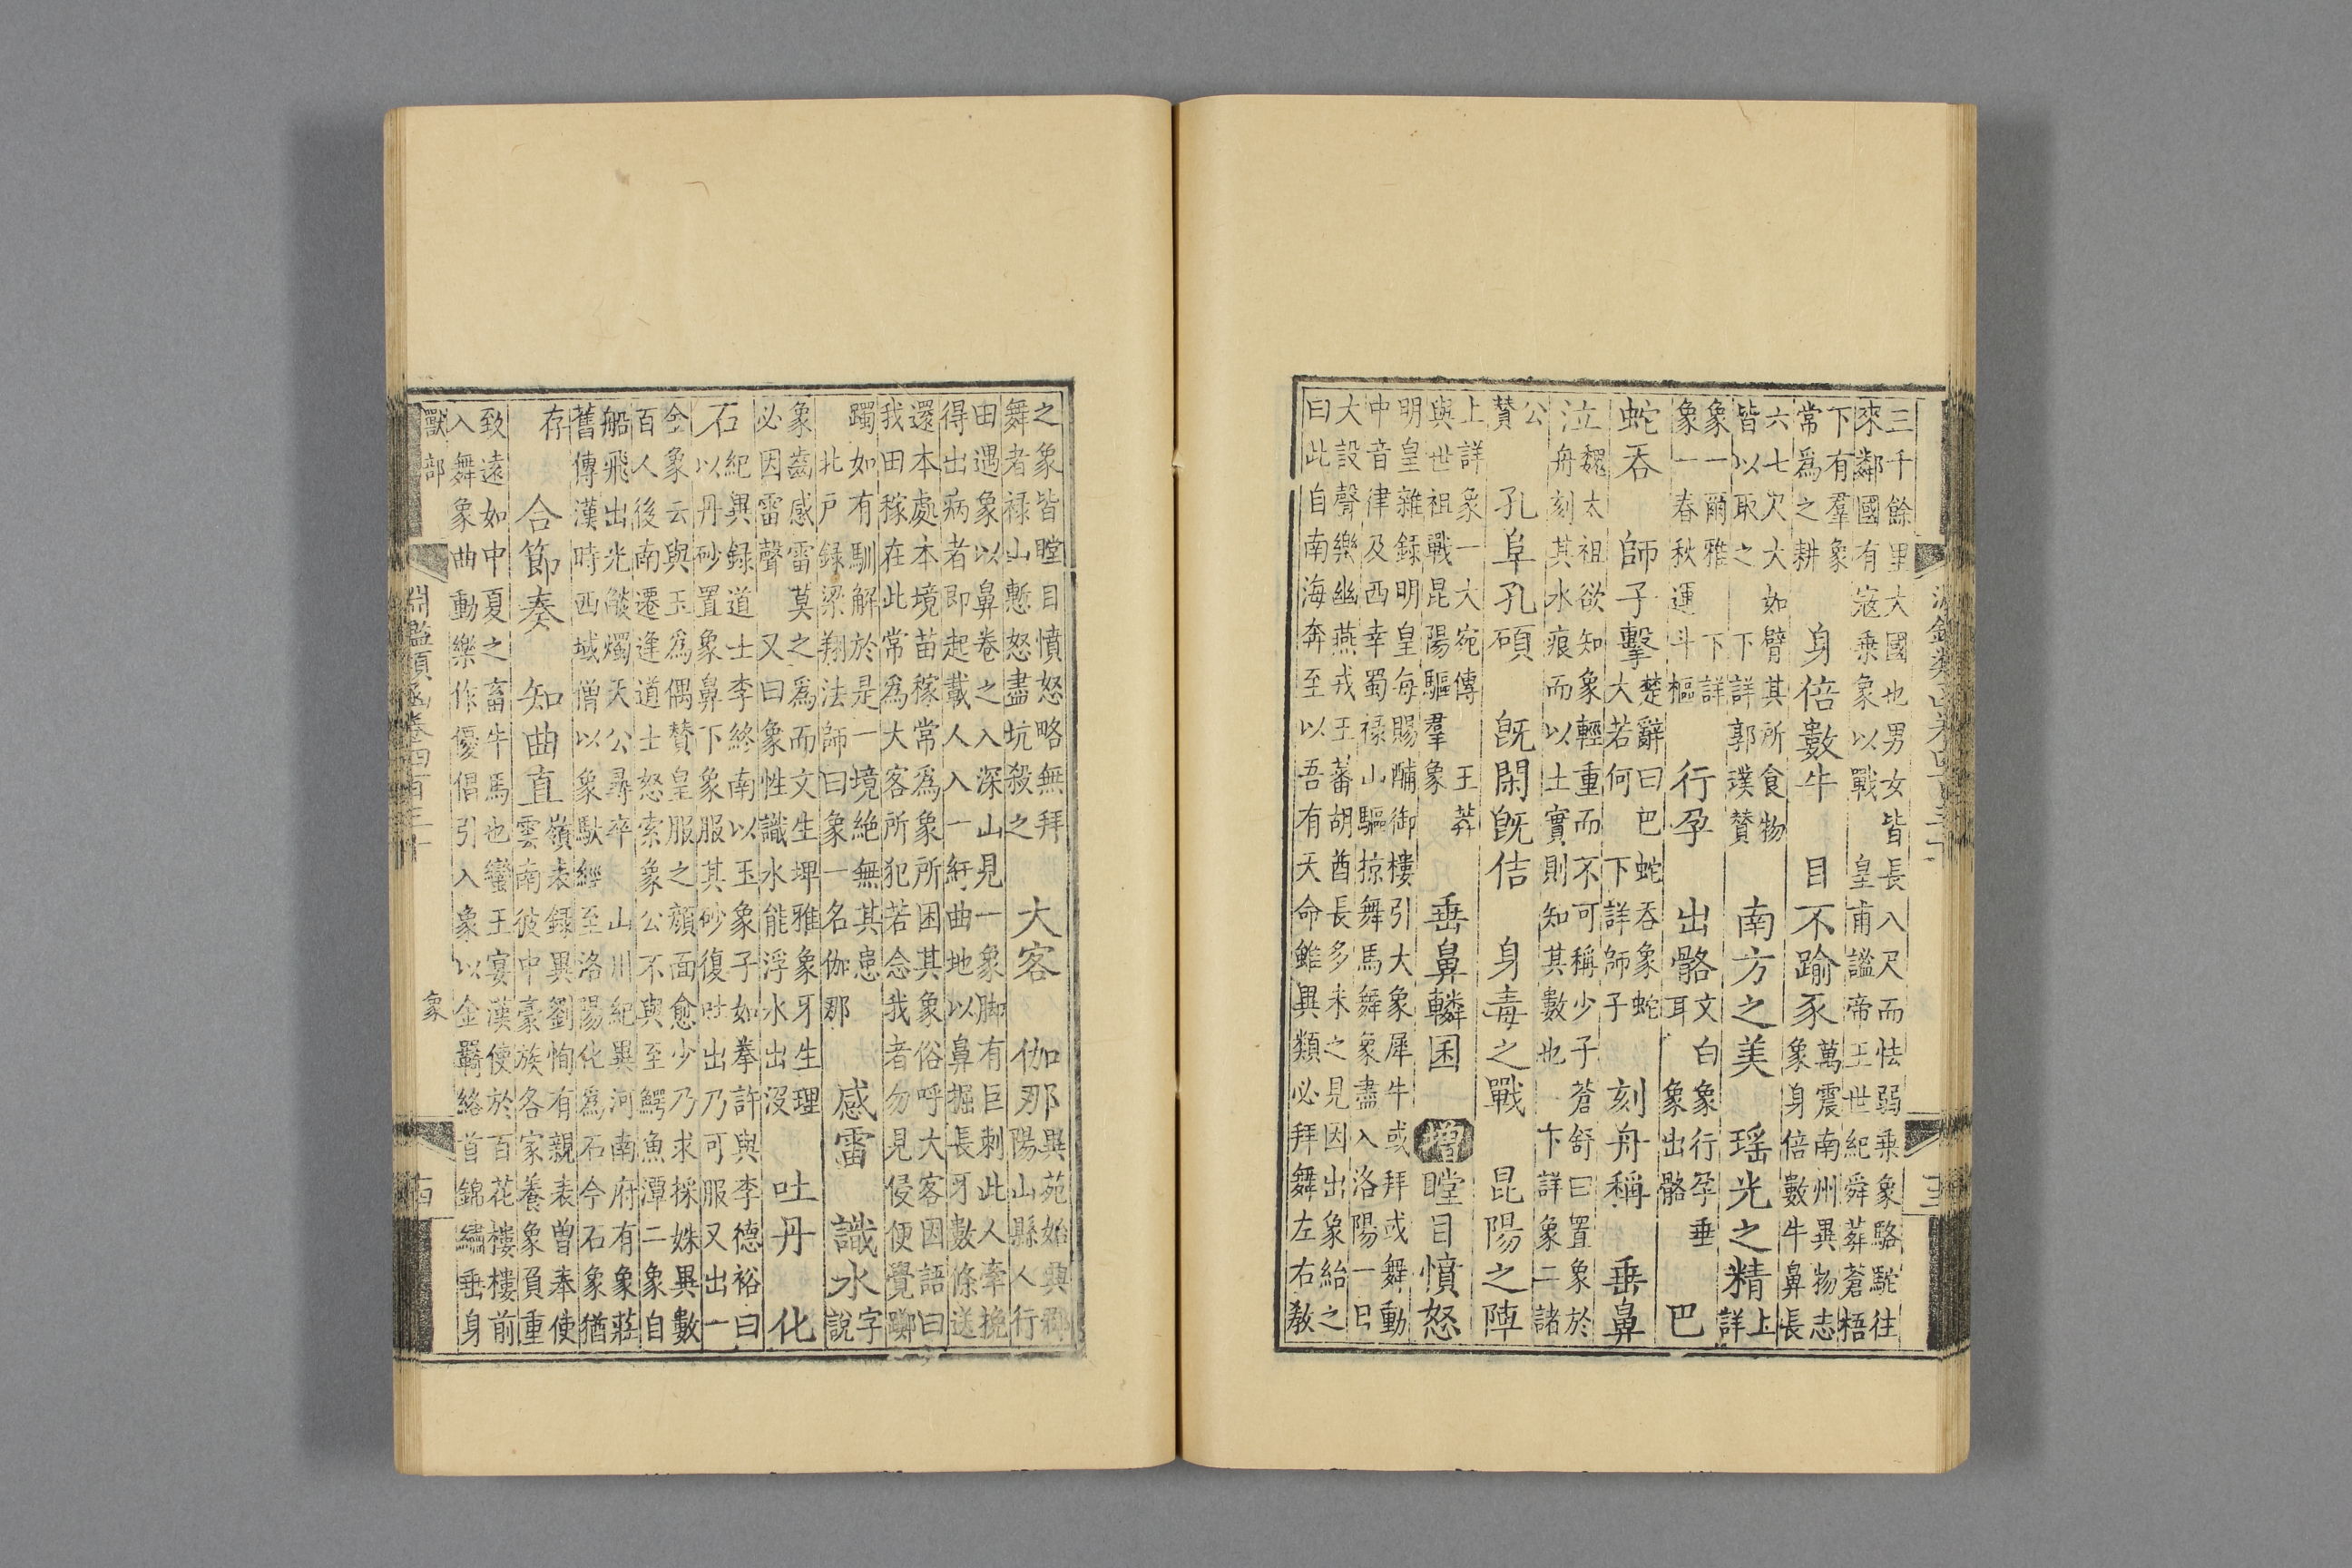 三千餘里大國也男女皆長八尺而怯弱乘象駱駝往
來鄰國有寇乘象以戰 皇甫謐帝王世紀舜葬蒼梧
下有羣象
常爲之耕
身倍數牛 目不踰豕
萬震南州異物志
象身倍數牛鼻長
六七尺大如臂其所食物
皆以取之 下詳郭璞贊
南方之美 瑤光之精
上
詳
象一爾雅下詳
象一春秋運斗樞
行孕 出骼
文白象行孕垂
耳象出骼
巴
蛇吞 師子擊
楚辭曰巴蛇吞象蛇
大若何下詳師子
刻舟稱 垂鼻
泣
魏太祖欲知象輕重而不可稱少子蒼舒曰置象於
舟刻其水痕而以土實則知其數也 下詳象二諸
公
贊
孔阜孔碩 旣閑旣佶 身毒之戰 昆陽之陣
上詳象一大宛傳 王莽
與世祖戰昆陽驅羣象
垂鼻轔囷 增 瞠目憤怒
明皇雜錄明皇每賜酺御樓引大象犀牛或拜或舞動
中音律及西幸蜀祿山驅掠舞馬舞象盡入洛陽一日
大設聲樂幽燕戎王蕃胡酋長多未之見因出象紿之
曰此自南海奔至以吾有天命雖異類必拜舞左右教
之象皆瞠目憤怒略無拜
舞者祿山慙怒盡坑殺之
大客 伽那
異苑始興郡
陽山縣人行
田遇象以鼻卷之入深山見一象脚有巨刺此人牽挽
得出病者即起載人入一紆曲地以鼻掘長牙數條送
還本處本境苗稼常爲象所困其象俗呼大客因語曰
我田稼在此常爲大客所犯若念我者勿見侵便覺躑
躅如有馴解於是一境絕無其患
北戶錄梁翔法師曰象一名伽那
感雷 識水
字
說
象齒感雷莫之爲而文生埤雅象牙生理
必因雷聲 又曰象性識水能浮水出沒
吐丹 化
石
紀異錄道士李終南以玉象子如拳許與李德裕曰
以丹砂置象鼻下象服其砂復吐出乃可服又出一
金象云與玉爲偶贊皇服之顏面愈少乃求採姝異數
百人後南遷逢道士怒索象公不與至鱷魚潭二象自
船飛出光燄燭天公尋卒 山川紀異河南府有象莊
舊傳漢時西域僧以象馱經至洛陽化爲石今石象猶
存
合節奏 知曲直
嶺表錄異劉恂有親表曾奉使
雲南彼中豪族各家養象負重
致遠如中夏之畜牛馬也蠻王宴漢使於百花樓樓前
入舞象曲動樂作優倡引入象以金羈絡首錦繡垂身
獸部 淵鑑類函卷四百三十 象